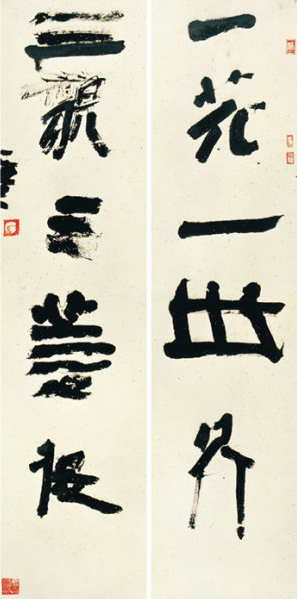 一花一世界
三藐三菩提